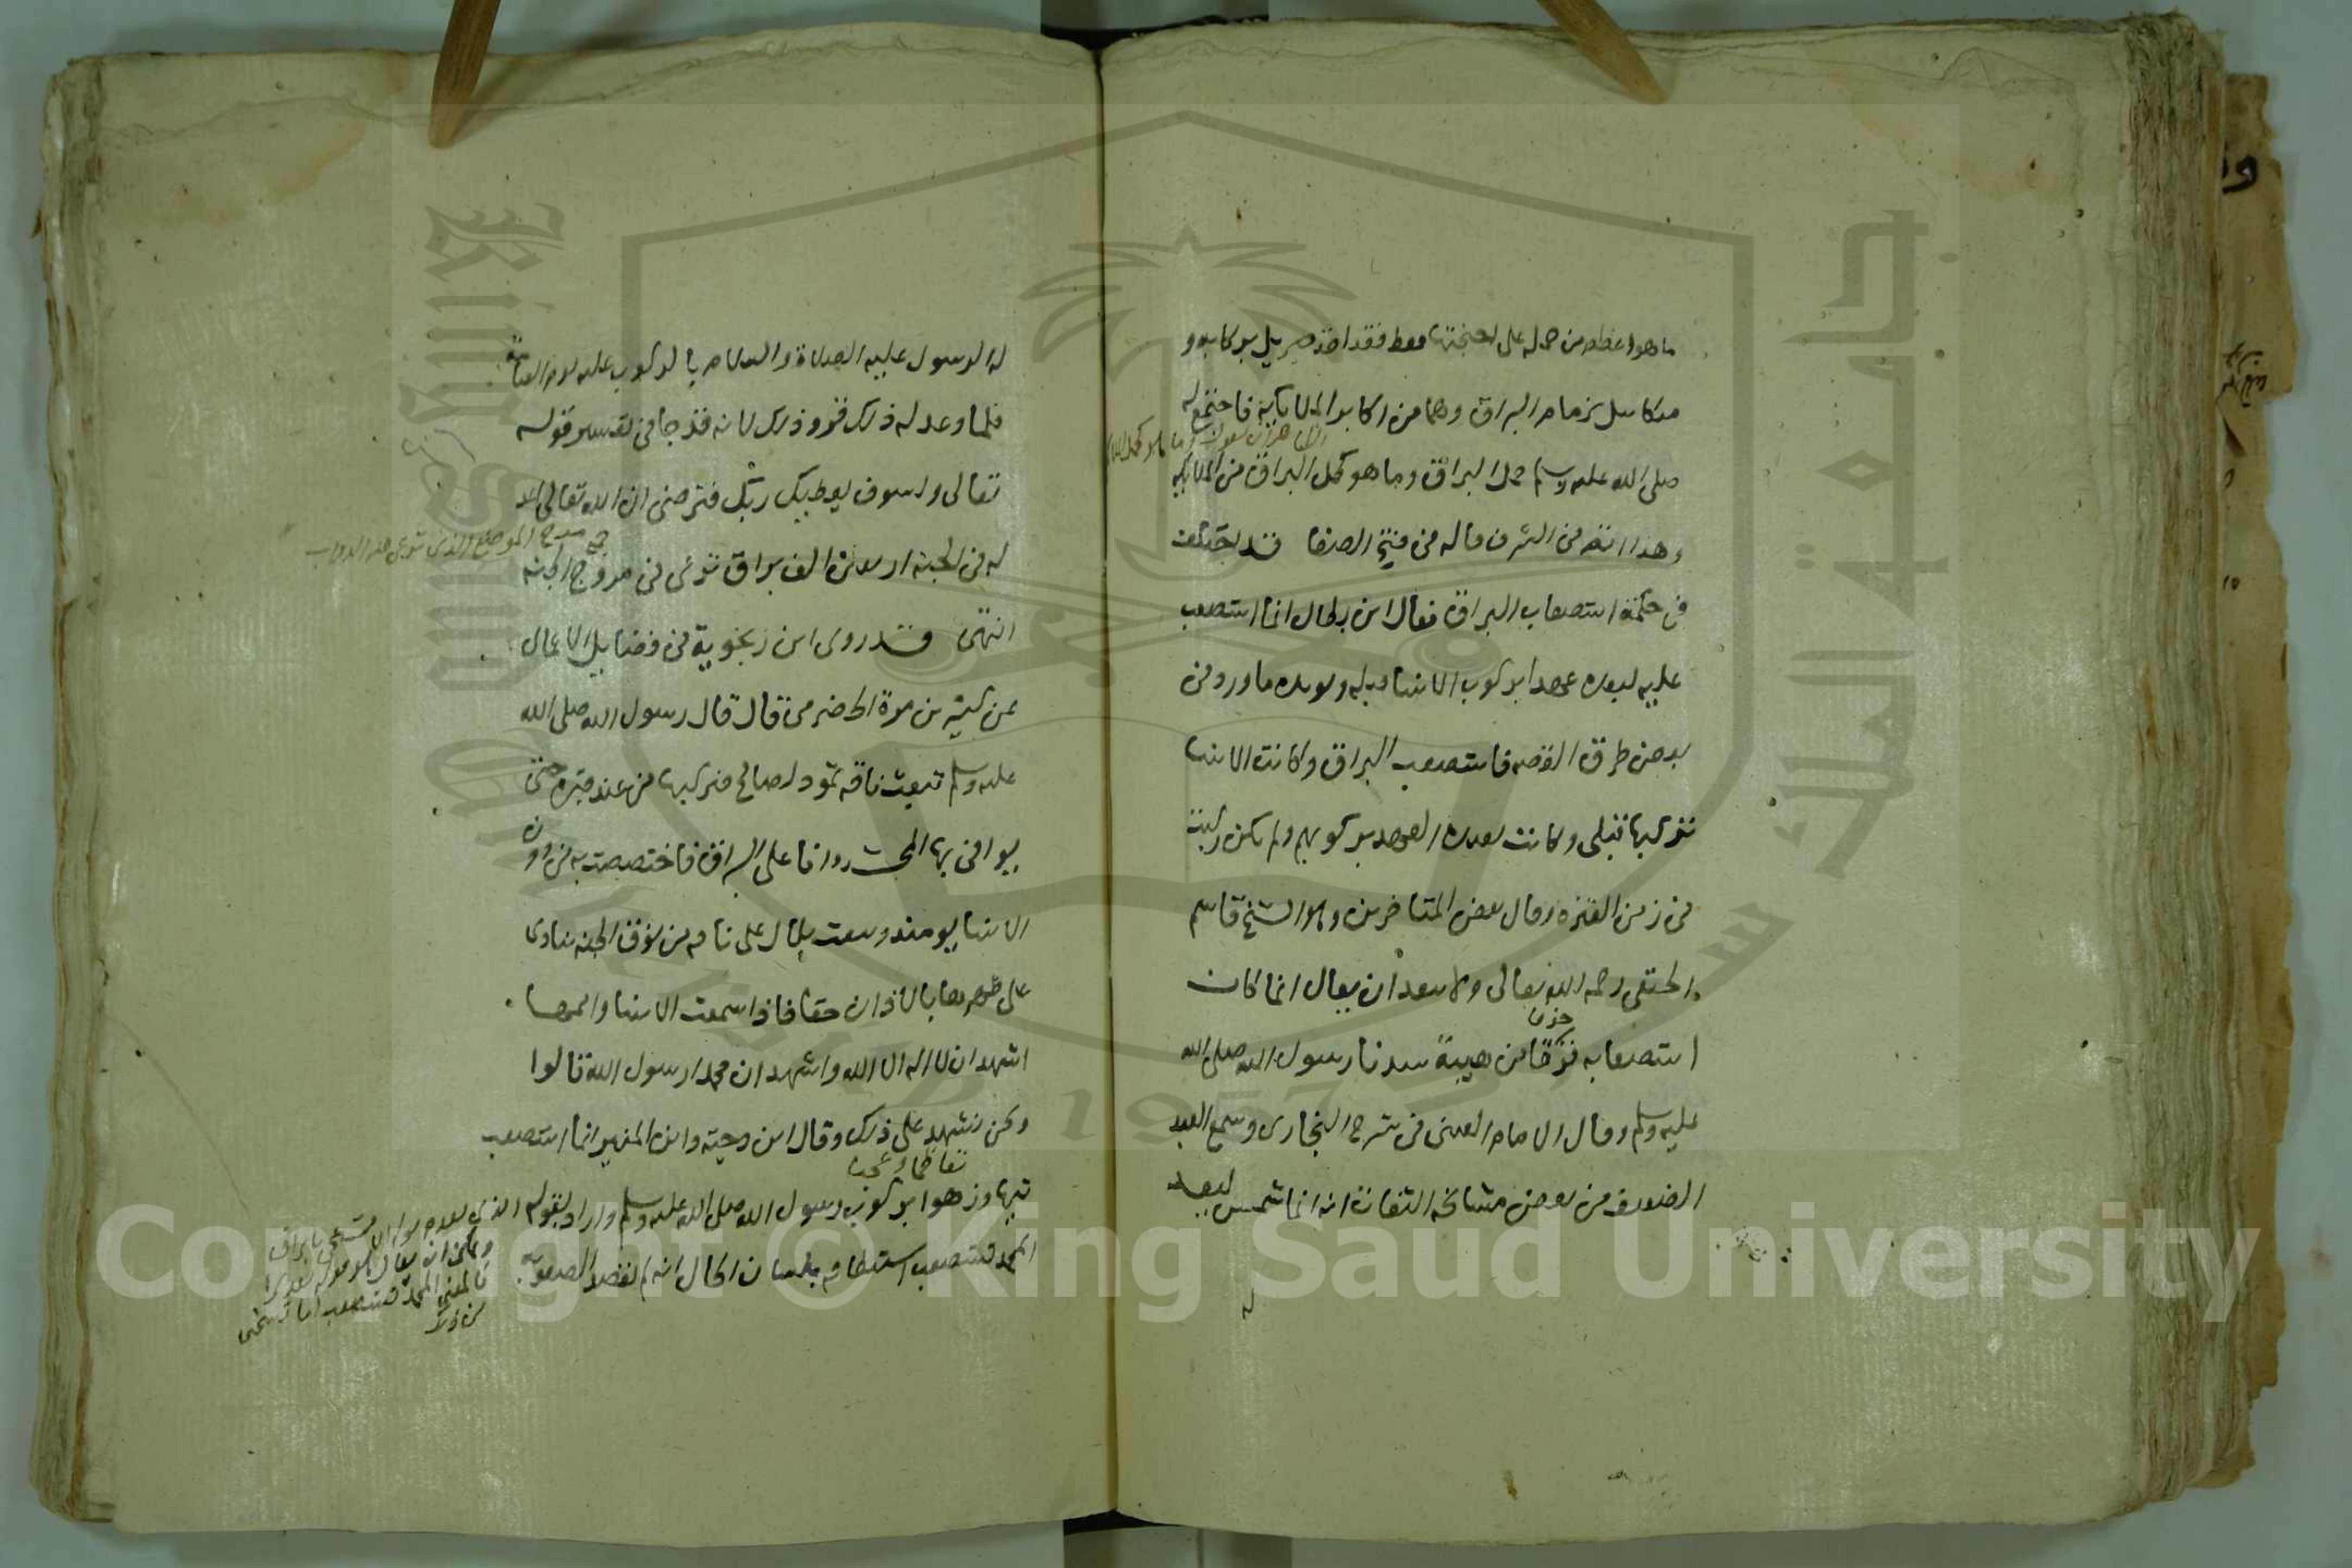 ما هو اعظم من حمله على اجنحتها فقط فقد اخذ جبريل بركابه و
ميكاييل بزمام البراق وهما من اكابر الملايكة فاجتمع له
صلى الله عليه وسلم حمل البراق وما هو كحمل البراق من الملايكة
وهذا اتم في الشرف قاله في فتح الصفا قد اختلف
في حكمة استصعاب البراق فقال ابن بطال انما استصعب
عليه لبعد عهد ابركوب الانبيا قبله ويويده ما ورد في
بعض طرق القصه فاستصعب البراق وكانت الانبيا
تركبها قبلي وكانت بعيدة العهد بركوبهم ولم تكن ركبت
في زمن الفترة وقال بعض المتاخرين وهو الشيخ قاسم
الحنفي رحمه الله تعالى ولا يبعد ان يقال انما كان
خوفا
استصعابه فرقا من هيبة سيدنا رسول الله صلى الله
عليه وسلم وقال الامام العيني في شرح البخاري وسمع العبد
الضعيف من بعض مشايخه الثقاة انه انما شمس ليعد
له
له الرسول عليه الصلاة والسلام بالركوب عليه يوم القيامة
فلما وعد له ذلك قر وذلك لانه قد جا في تفسير قوله
تعالى ولسوف يعطيك ربك فترضى ان الله تعالى اعد
جمع مرج الموضع الذي ترعى فيه الدواب
له في الجنة اربعين الف براق ترعى في مروج الجنه
انتهى وقد روى ابن زنجوية في فضايل الاعمال
عن كثير بن مرة الحضرمي قال قال رسول الله صلى الله
عليه وسلم تبعث ناقة ثمود لصالح فيركبها من عند قبره حتى
يوافي بها المحشر وانا على البراق فاختصصت به من دون
الانبيا يومئذ ويبعث بلال على ناقه من نوق الجنه ينادي
على ظهرها بالاذان حقا فاذا سمعت الانبيا واممها
اشهد ان لا اله الا الله واشهد ان محمدا رسول الله قالوا
ونحن نشهد على ذلك وقال ابن دحية وابن المنير انما استصعب
تعاظما وعجبا
تيها وزهوا بركوب رسول الله صلى الله عليه وسلم واراد بقوله
المحمد تستصعب استنطاقه بلسان الحال انه لم يقصد الصعوبة
ويمكن ان يقال
من ذلك